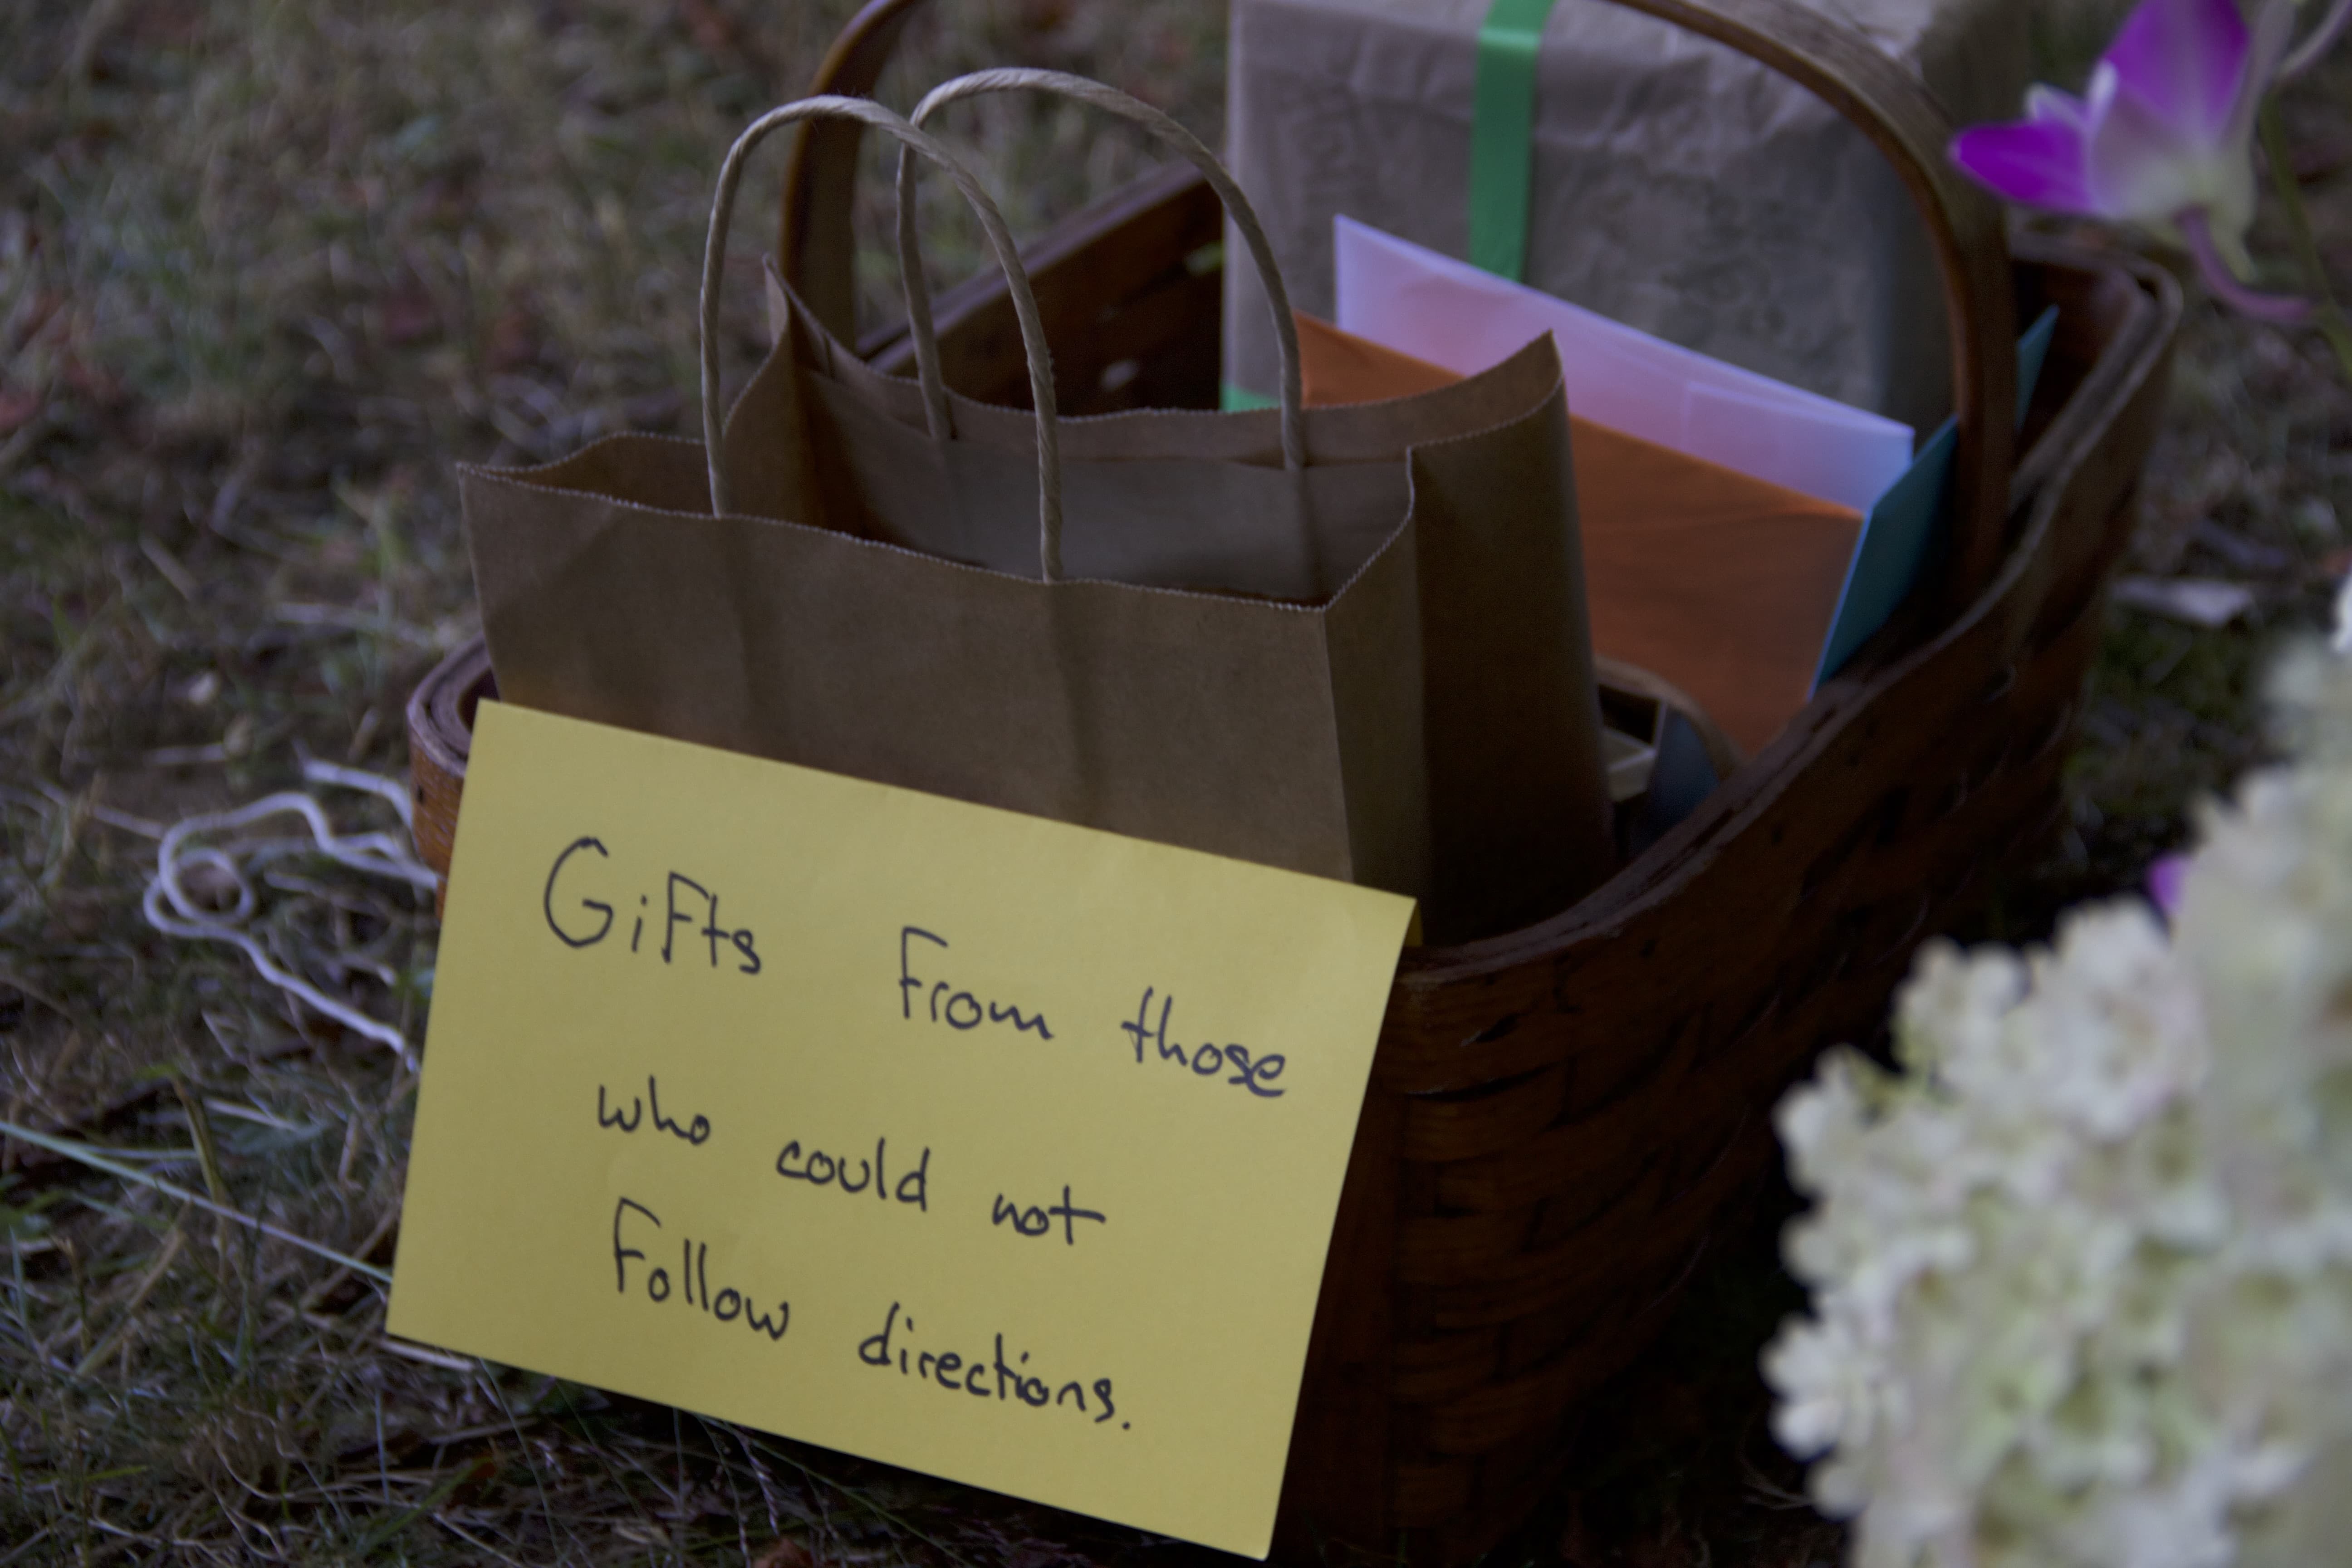 Gifts From those
who could not
Follow directions.